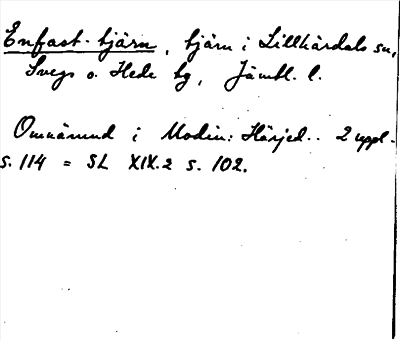 Enfast-tjärn, tjärn i Lillhärdals sn,
Svegs o. Hede tg, Jämtl. l.
Omnämnd i Modin: Härjed.. 2 uppl.
s. 114 = SL XIX.2 s. 102.